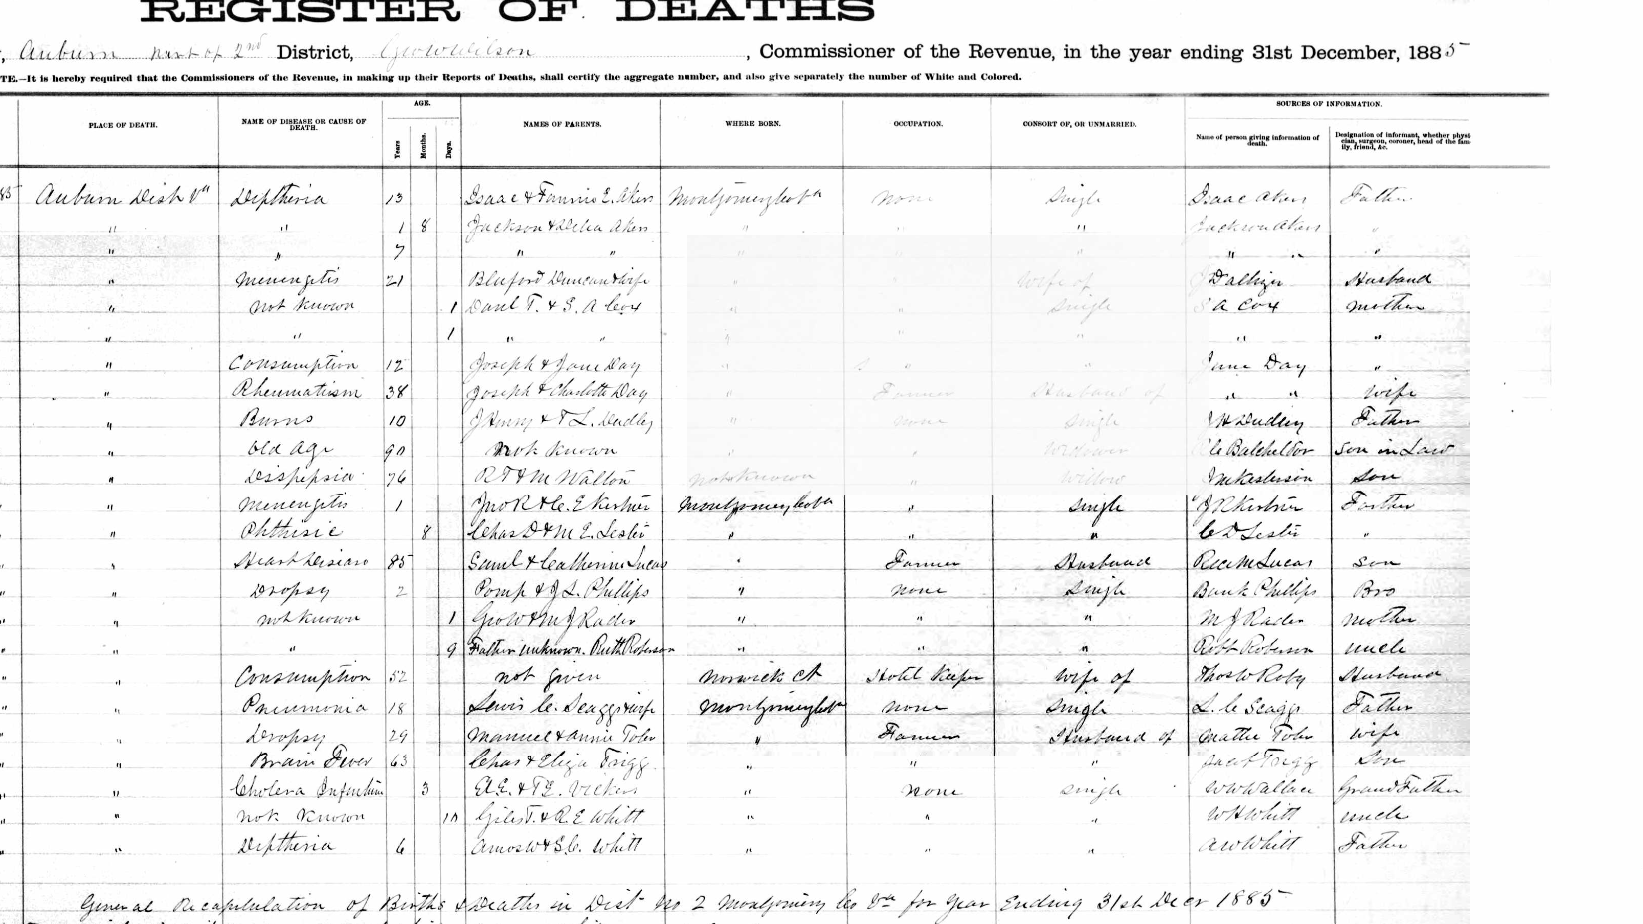 REGISTER OF DEATHS
, Auburn part of 2nd District, Geo W Wilson, Commissioner of the Revenue, in the year ending 31st December, 1885
TE.—It is hereby required that the Commissioners of the Revenue, in making up their Reports of Deaths, shall certify the aggregate number, and also give separately the number of White and Colored.
AGE. SOURCES OF INFORMATION.
PLACE OF DEATH. NAME OF DISEASE OR CAUSE OF DEATH. Years Months. Days. NAMES OF PARENTS. WHERE BORN. OCCUPATION. CONSORT OF, OR UNMARRIED. Name of person giving information of death. Designation of informant, whether physician, surgeon, coroner, head of the family, friend, &c.
85 Auburn Dist Va Diptheria 13 Isaac & Fannie E. Akers Montgomery Co Va none Single Isaac Akers Father
" " 1 8 Jackson & Delia Akers " " " Jackson Akers "
" " 7 " " " " " " "
" Menengitis 21 Bluford Duncan & wife " " wife of Dalhizer Husband
" not known 1 Danl T. & S. A Cox " " Single S A Cox mother
" " 1 " " " " " " "
" Consumption 12 Joseph & Jane Day " " " Jane Day "
" Rheumatism 38 Joseph & Charlotte Day " Farmer Husband of " " wife
" Burns 10 J Henry & T L. Dudley " none Single J H Dudley Father
" Old Age 90 Not Known " " Widower C Batcheldor Son in Law
" Dispepsia 76 R T & M Walton not known " Widow Son
" Menengitis 1 Jno R & C. E Kirtner Montgomery Co Va " Single J R Kirtner Farther
" " Phthisic 8 Chas D & M E. Lester " " " C D Lester "
" " Heart Disease 85 Saml & Catherine Lucas " Farmer Husband Rece M Lucas Son
" " Dropsy 2 Pomp & J L. Phillips " none Single Bank Phillips Bro
" " not known 1 Geo W & M J Rader " " " M J Rader mother
" " " 9 Father unknown. Ruth Roberson " " " Robt Roberson uncle
" " Consumption 52 not given Norwick Ct Hotel Keeper wife of Thos W Roby Husband
" " Pneumonia 18 Lewis C. Scaggs & wife Montgomery Co Va none Single L. C Scaggs Father
" " Dropsy 29 Manuel & Annie Toler " Farmer Husband of Mattie Toler wife
" " Brain Fever 63 Chas & Eliza Trigg " " " Jacob Trigg Son
" " Cholera Infantum 3 A. E. & T E. Vickers " none Single W W Wallace Grand Father
" " not known 10 Giles T. & R. E Whitt " " " W H Whitt uncle
" " Diptheria 6 Amos W & S. C. Whitt " " " A W Whitt Father
General Recapitulation of Births & Deaths in Dist No 2 Montgomery Co Va for Year Ending 31st Decr 1885